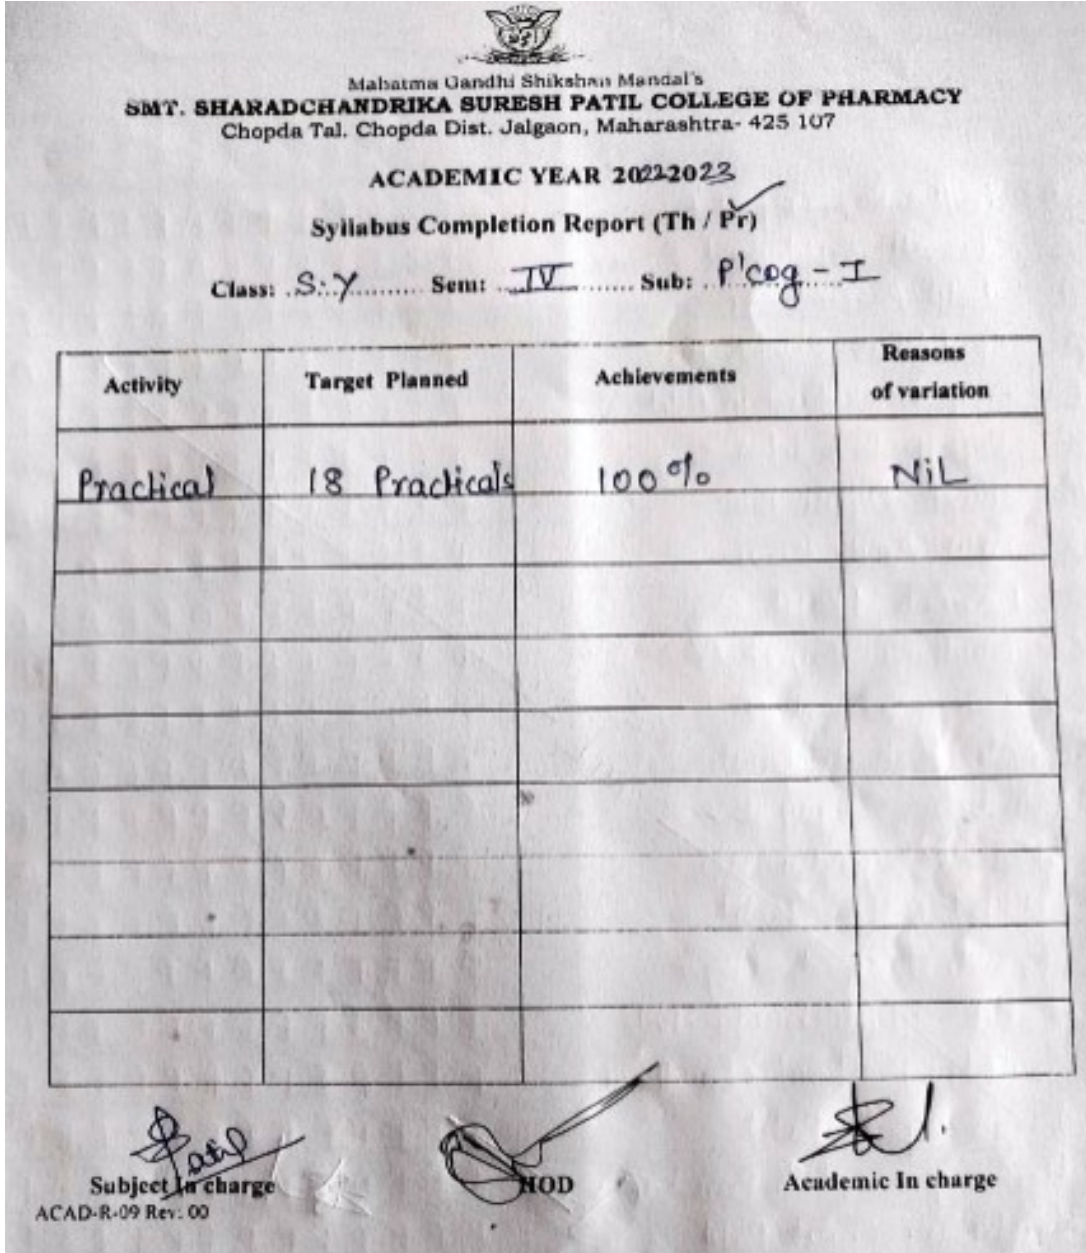 Mahatma Gandhi Shikshan Mandal's
SMT. SHARADCHANDRIKA SURESH PATIL COLLEGE OF PHARMACY
Chopda Tal. Chopda Dist. Jalgaon, Maharashtra- 425 107
ACADEMIC YEAR 2022-2023
Syllabus Completion Report (Th / Pr)
Class: S.Y Sem: IV Sub: P'cog - I
Activity Target Planned Achievements Reasons of variation
Practical 18 Practicals 100% NiL
Patil
Subject In charge HOD Academic In charge
ACAD-R-09 Rev: 00